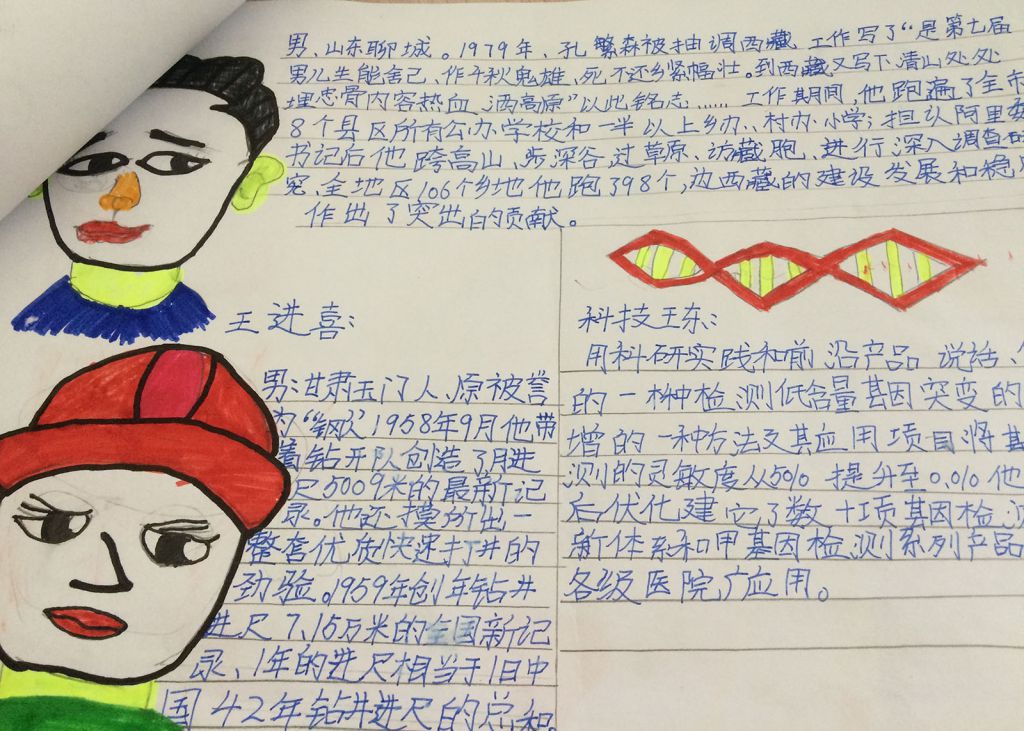 男、山东聊城。1979年、孔繁森被抽调西藏 工作写了“是第七届
男儿生能舍己、作千秋鬼雄、死不还乡紧幅壮。到西藏又写下清山处处
埋忠骨内容热血 洒高原”以此铭志…… 工作期间,他跑遍了全市
8个县区所有公办学校和一半以上乡办、村办小学;担认阿里
书记后他跨高山、步深谷、过草原、访藏胞、进行深入调查
究、全地区106个乡地他跑了98个,为西藏的建设发展和稳
作出了突出的贡献。
王进喜:
男:甘肃玉门人、原被誉
为“钢 1958年9月他带
着钻井队创造了月进
尺5009米的最新记
录。他还摸索出一
整套优质快速打井的
劲验。1959年创年钻井
进尺7.15万米的全国新记
录、1年的进尺相当于旧中
国42年钻井进尺的总和
科技王东:
用科研实践和前沿产品 说话、
的一种检测低含量基因突变的
增的一种方法及其应用项目将
测的灵敏度从5% 提升至0.1%他
后优化建它了数十项基因检
新体系和甲基因检测系列产品
各级医院广应用。